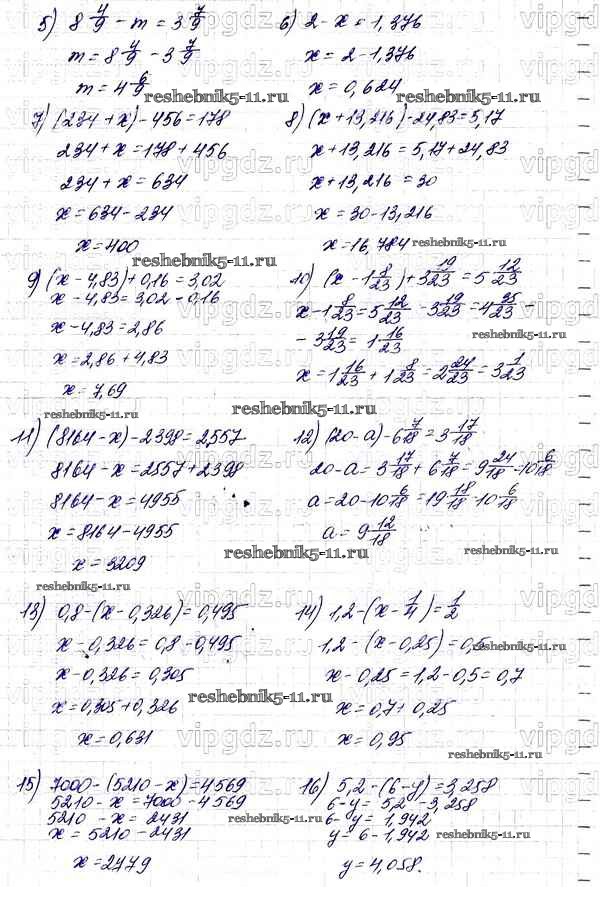 5) 8 4/9 - m = 3 7/9
m = 8 4/9 - 3 7/9
m = 4 6/9
reshebnik5-11.ru
6) 2 - x = 1,376
x = 2 - 1,376
x = 0,624
reshebnik5-11.ru
7) (234 + x) - 456 = 178
234 + x = 178 + 456
234 + x = 634
x = 634 - 234
x = 400
reshebnik5-11.ru
8) (x + 13,216) - 24,83 = 5,17
x + 13,216 = 5,17 + 24,83
x + 13,216 = 30
x = 30 - 13,216
x = 16,784
reshebnik5-11.ru
9) (x - 4,83) + 0,16 = 3,02
x - 4,83 = 3,02 - 0,16
x - 4,83 = 2,86
x = 2,86 + 4,83
x = 7,69
reshebnik5-11.ru
10) (x - 1 8/23) + 3 19/23 = 5 12/23
x - 1 8/23 = 5 12/23 - 3 19/23 = 4 35/23 -
- 3 19/23 = 1 16/23
reshebnik5-11.ru
x = 1 16/23 + 1 8/23 = 2 24/23 = 3 1/23
reshebnik5-11.ru
11) (8164 - x) - 2398 = 2,557
8164 - x = 2557 + 2398
8164 - x = 4955
x = 8164 - 4955
x = 3209
reshebnik5-11.ru
12) (20 - a) - 6 7/18 = 3 17/18
20 - a = 3 17/18 + 6 7/18 = 9 24/18 = 10 6/18
a = 20 - 10 6/18 = 19 18/18 - 10 6/18
a = 9 12/18
reshebnik5-11.ru
reshebnik5-11.ru
13) 0,8 - (x - 0,326) = 0,495
x - 0,326 = 0,8 - 0,495
x - 0,326 = 0,305
x = 0,305 + 0,326
x = 0,631
reshebnik5-11.ru
14) 1,2 - (x - 1/4) = 1/2
1,2 - (x - 0,25) = 0,5
x - 0,25 = 1,2 - 0,5 = 0,7
x = 0,7 + 0,25
x = 0,95
reshebnik5-11.ru
15) 7000 - (5210 - x) = 4569
5210 - x = 7000 - 4569
5210 - x = 2431
x = 5210 - 2431
x = 2779
reshebnik5-11.ru
16) 5,2 - (6 - y) = 3,258
6 - y = 5,2 - 3,258
6 - y = 1,942
y = 6 - 1,942
y = 4,058.
reshebnik5-11.ru
vipgdz.ru